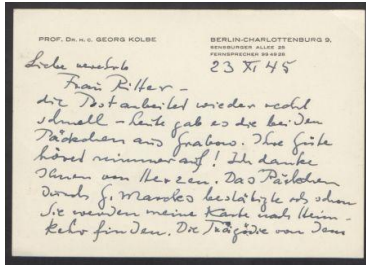 PROF. DR. H. C. GEORG KOLBE
BERLIN-CHARLOTTENBURG 9,
SENSBURGER ALLEE 25
FERNSPRECHER 99 45 25
23 XI 45
Liebe verehrte
Frau Ritter –
die Post arbeitet wieder recht
schnell – heute gab es die beiden
Päckchen aus Grabow. Ihre Güte
höret nimmer auf! Ich danke
Ihnen von Herzen. Das Päckchen
durch G. Marcks bestätigte ich schon
Sie werden meine Karte nach Heim-
kehr finden. Die Tragödie von dem